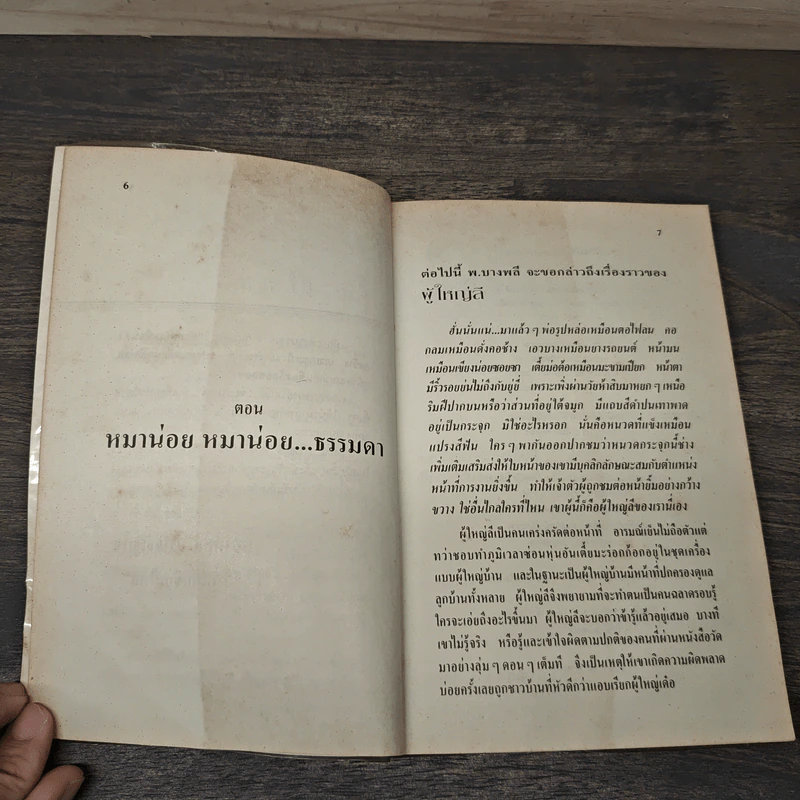 6
ตอน
หมาน่อย หมาน่อย...ธรรมดา
7
ต่อไปนี้ พ.บางพลี จะขอกล่าวถึงเรื่องราวของ
ผู้ใหญ่ลี
ฮั่นนั่นแน่...มาแล้ว ๆ พ่อรูปหล่อเหมือนตอไฟลน คอ
กลมเหมือนดั่งคอช้าง เอวบางเหมือนยางรถยนต์ หน้ามน
เหมือนเขียงน่อยซอยซก เตี้ยม่อต้อเหมือนมะขามเปียก หน้าตา
มีริ้วรอยย่นไม่ถึงกับยู่ยี่ เพราะเพิ่งผ่านวัยห้าสิบมาหยก ๆ เหนือ
ริมฝีปากบนหรือว่าส่วนที่อยู่ใต้จมูก มีแถบสีดำปนเทาพาด
อยู่เป็นกระจุก มิใช่อะไรหรอก นั่นคือหนวดที่แข็งเหมือน
แปรงสีฟัน ใคร ๆ พากันออกปากชมว่าหนวดกระจุกนี้ช่าง
เพิ่มเติมเสริมส่งให้ใบหน้าของเขามีบุคลิกลักษณะสมกับตำแหน่ง
หน้าที่การงานยิ่งขึ้น ทำให้เจ้าตัวผู้ถูกชมต่อหน้ายิ้มอย่างกว้าง
ขวาง ใช่อื่นไกลใครที่ไหน เขาผู้นี้ก็คือผู้ใหญ่ลีของเรานี่เอง
ผู้ใหญ่ลีเป็นคนเคร่งครัดต่อหน้าที่ อารมณ์เย็นไม่ถือตัวแต่
ทว่าชอบทำภูมิเวลาซ่อนหุ่นอันเตี้ยมะร่อกก๊อกอยู่ในชุดเครื่อง
แบบผู้ใหญ่บ้าน และในฐานะเป็นผู้ใหญ่บ้านมีหน้าที่ปกครองดูแล
ลูกบ้านทั้งหลาย ผู้ใหญ่ลีจึงพยายามที่จะทำตนเป็นคนฉลาดรอบรู้
ใครจะเอ่ยถึงอะไรขึ้นมา ผู้ใหญ่ลีจะบอกว่าข้ารู้แล้วอยู่เสมอ บางที
เขาไม่รู้จริง หรือรู้และเข้าใจผิดตามปกติของคนที่ผ่านหนังสือวัด
มาอย่างลุ่ม ๆ ดอน ๆ เต็มที จึงเป็นเหตุให้เขาเกิดความผิดพลาด
บ่อยครั้งเลยถูกชาวบ้านที่หัวดีกว่าแอบเรียกผู้ใหญ่เด๋อ